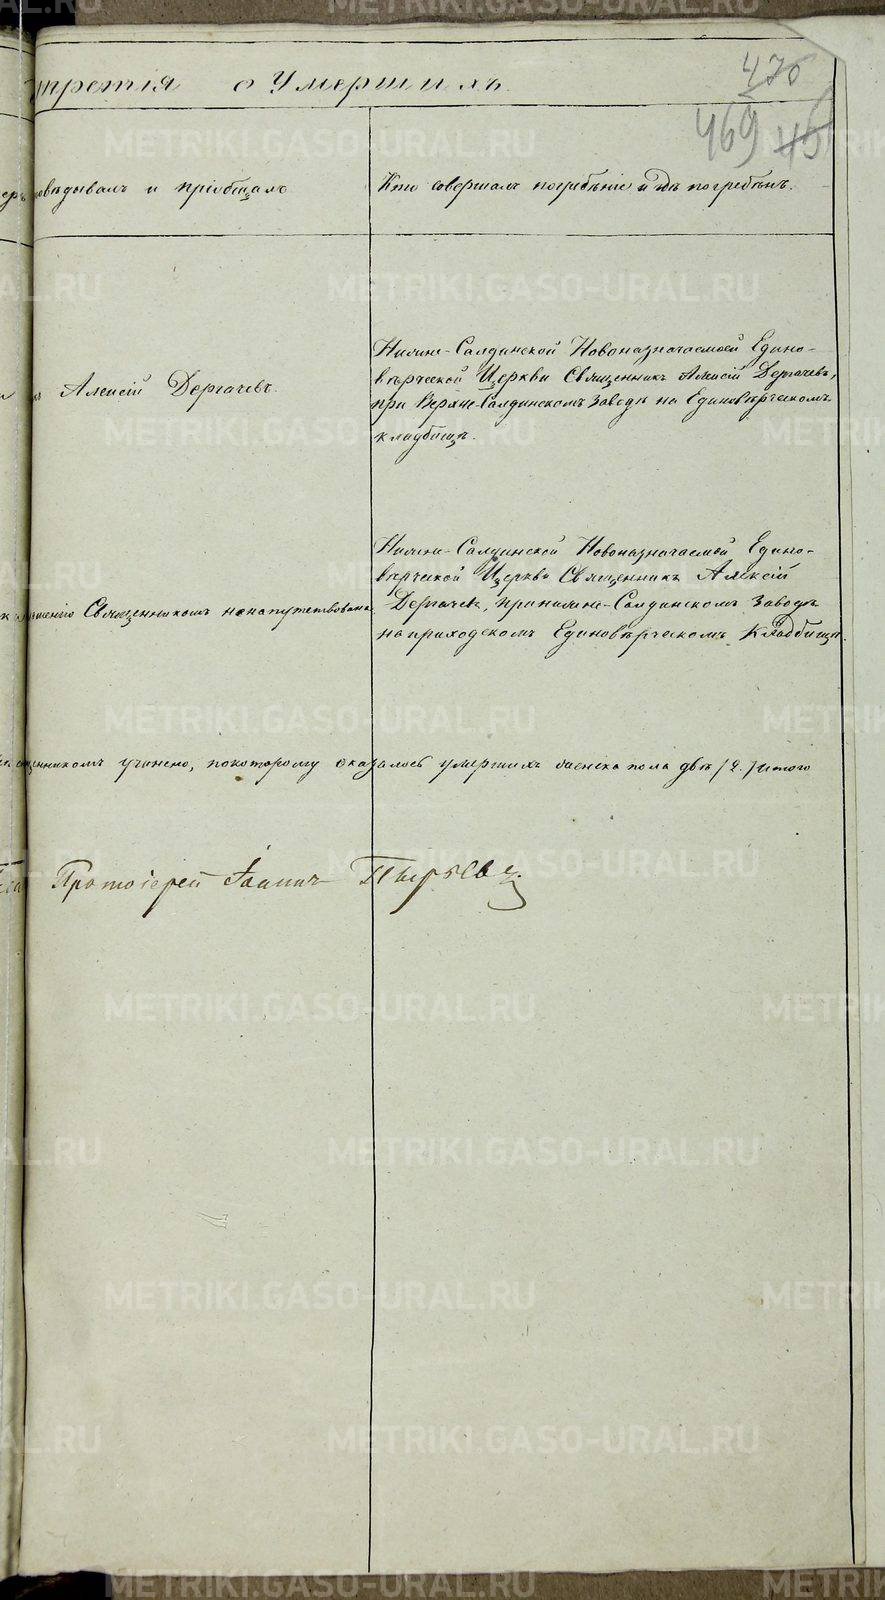 третія о Умершихъ.
470
469 45
овѣдывалъ и пріобщалъ
Кто совершалъ погребеніе и гдѣ погребенъ.
Алексій Дергачевъ.
Нижне-Салдинской Новоназначаемой Едино-
вѣрческой Церкви Священникъ Алексій Дергачевъ,
при Верхне-Салдинскомъ Заводѣ на Единовѣрческомъ
кладбищѣ.
Нижне-Салдинской Новоназначаемой Едино-
вѣрческой Церкви Священникъ Алексій
Священникомъ ненапутствована
Дергачевъ, при нижне-Салдинскомъ Заводѣ
на приходскомъ Единовѣрческомъ Кладбищѣ.
щенникомъ учинено, по которому оказалось умершихъ женска пола двѣ /2./ итого
Протоіерей Іоаннъ Пырьевъ.
METRIKI.GASO-URAL.RU